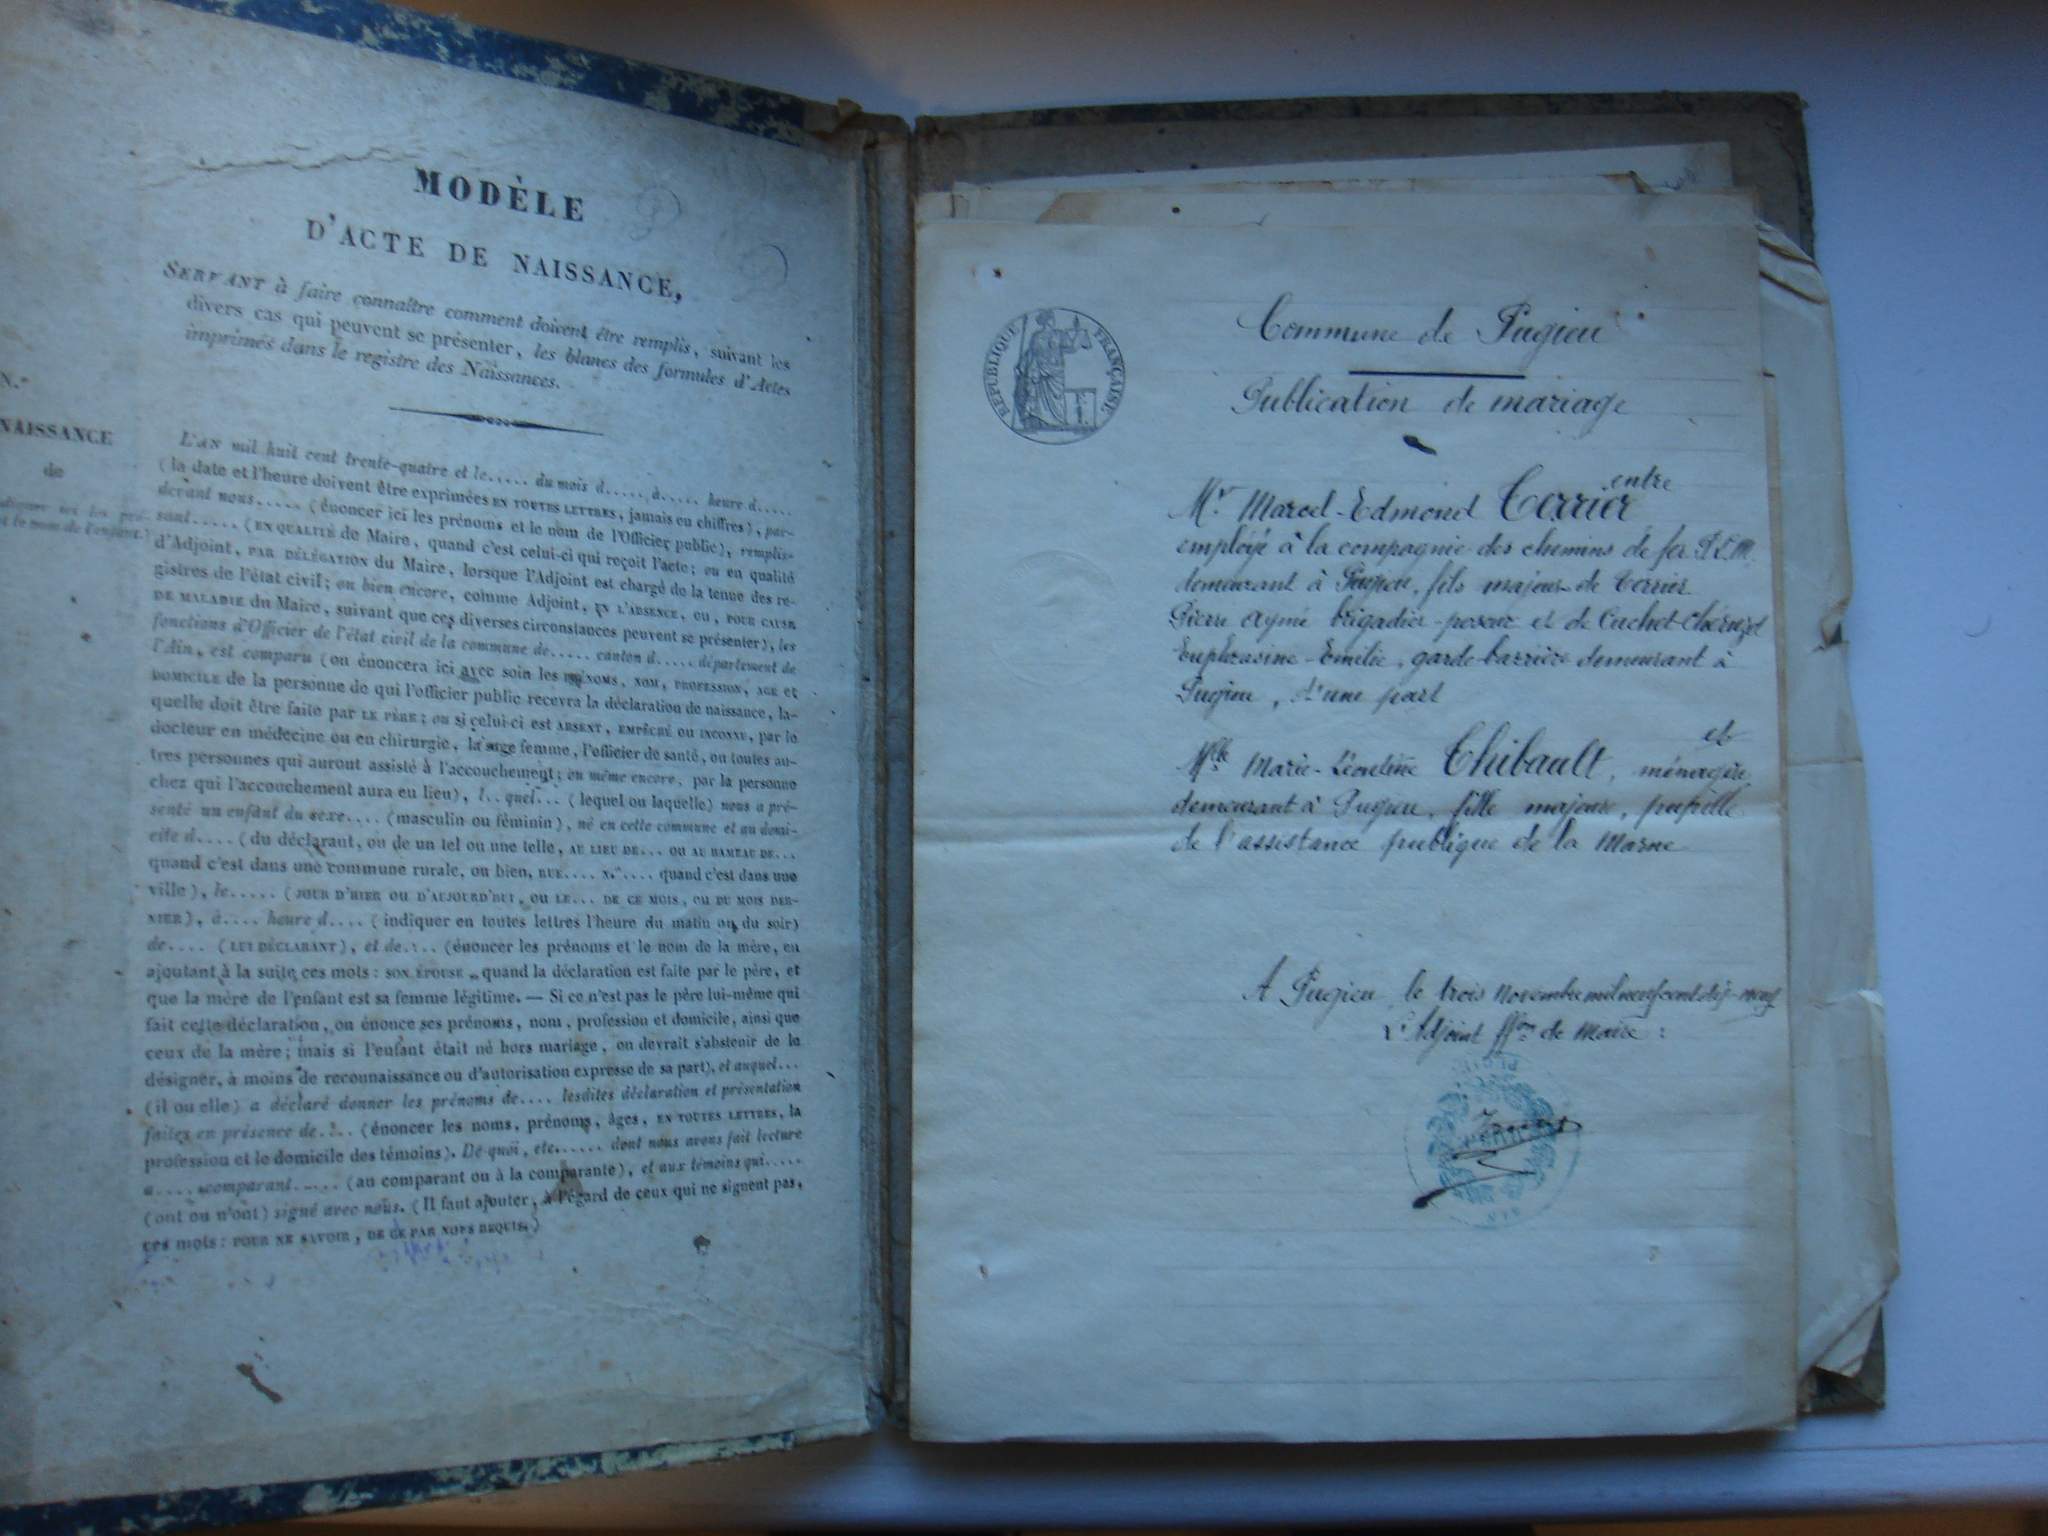 MODÈLE
D'ACTE DE NAISSANCE,
SERVANT à faire connaître comment doivent être remplis, suivant les
divers cas qui peuvent se présenter, les blancs des formules d'Actes
imprimés dans le registre des Naissances.
N.°
NAISSANCE
de
L'AN mil huit cent trente-quatre et le..... du mois d..... à..... heure d.....
(la date et l'heure doivent être exprimées EN TOUTES LETTRES, jamais en chiffres), par-
devant nous..... (énoncer ici les prénoms et le nom de l'Officier public), remplis-
sant..... (EN QUALITÉ de Maire, quand c'est celui-ci qui reçoit l'acte; ou en qualité
d'Adjoint, PAR DÉLÉGATION du Maire, lorsque l'Adjoint est chargé de la tenue des re-
gistres de l'état civil; ou bien encore, comme Adjoint, EN L'ABSENCE, OU, POUR CAUSE
DE MALADIE du Maire, suivant que ces diverses circonstances peuvent se présenter), les
fonctions d'Officier de l'état civil de la commune de..... canton d..... département de
l'Ain, est comparu (on énoncera ici avec soin les PRÉNOMS, NOM, PROFESSION, AGE et
DOMICILE de la personne de qui l'officier public recevra la déclaration de naissance, la-
quelle doit être faite par LE PÈRE; ou si celui-ci est ABSENT, EMPÊCHÉ OU INCONNU, par le
docteur en médecine ou en chirurgie, la sage femme, l'officier de santé, ou toutes au-
tres personnes qui auront assisté à l'accouchement; ou même encore, par la personne
chez qui l'accouchement aura eu lieu), l.. quel... (lequel ou laquelle) nous a pré-
senté un enfant du sexe.... (masculin ou féminin), né en cette commune et au domi-
cile d.... (du déclarant, ou de un tel ou une telle, AU LIEU DE... OU AU HAMEAU DE...
quand c'est dans une commune rurale, ou bien, RUE.... N.°.... quand c'est dans une
ville), le..... (JOUR D'HIER OU D'AUJOURD'HUI, OU LE... DE CE MOIS, OU DU MOIS DER-
NIER), à.... heure d.... (indiquer en toutes lettres l'heure du matin ou du soir)
de.... (LUI DÉCLARANT), et de... (énoncer les prénoms et le nom de la mère, en
ajoutant à la suite ces mots: SON ÉPOUSE, quand la déclaration est faite par le père, et
que la mère de l'enfant est sa femme légitime. — Si ce n'est pas le père lui-même qui
fait cette déclaration, on énonce ses prénoms, nom, profession et domicile, ainsi que
ceux de la mère; mais si l'enfant était né hors mariage, on devrait s'abstenir de la
désigner, à moins de reconnaissance ou d'autorisation expresse de sa part), et auquel...
(il ou elle) a déclaré donner les prénoms de.... lesdites déclaration et présentation
faites en présence de... (énoncer les noms, prénoms, âges, EN TOUTES LETTRES, la
profession et le domicile des témoins). De quoi, etc...... dont nous avons fait lecture
a.... comparant..... (au comparant ou à la comparante), et aux témoins qui.....
(ont ou n'ont) signé avec nous. (Il faut ajouter, à l'égard de ceux qui ne signent pas,
ces mots: POUR NE SAVOIR, DE CE PAR NOUS REQUIS.)
RÉPUBLIQUE FRANÇAISE
Commune de Pugieu
Publication de mariage
entre
Mr. Marcel-Edmond Terrier
employé à la compagnie des chemins de fer P.L.M.
demeurant à Pugieu, fils majeur de Terrier
Pierre Aymé brigadier-poseur et de Cachet-Chérizel
Euphrasine-Emélie, garde-barrière demeurant à
Pugieu, d'une part
et
Mlle Marie-Léontine Thibault, ménagère
demeurant à Pugieu, fille majeure, pupille
de l'assistance publique de la Marne
A Pugieu, le trois Novembre mil neuf cent dix-neuf
L'Adjoint ffon de Maire: